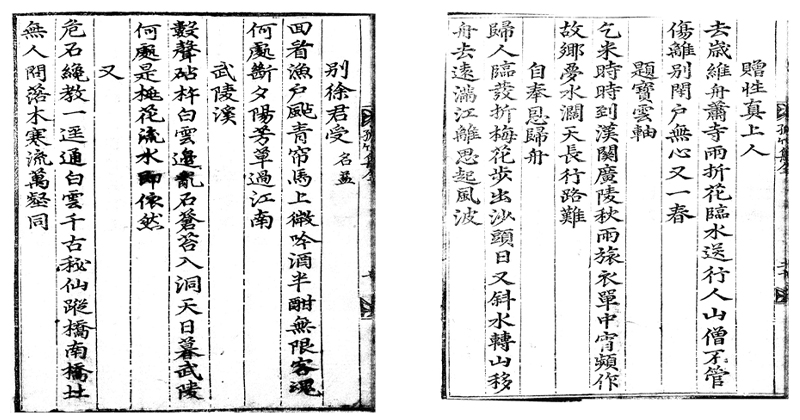 贈性真上人
去歲維舟蕭寺雨折花臨水送行人山僧不管
傷離別閉戶無心又一春
題寶雲軸
乞米時時到漢關廣陵秋雨旅衣單中宵頻作
故鄉夢水濶天長行路難
自奉恩歸舟
歸人臨發折梅花步出沙頭日又斜水轉山移
舟去遠滿江離思起風波
別徐君受 名益
回首漁戶颭青帘馬上微吟酒半酣無限客魂
何處斷夕陽芳草過江南
武陵溪
數聲砧杵白雲邊亂石蒼苔入洞天日暮武陵
何處是桃花流水卽依然
又
危石纔教一逕通白雲千古秘仙蹤橋南橋北
無人問落木寒流萬壑同